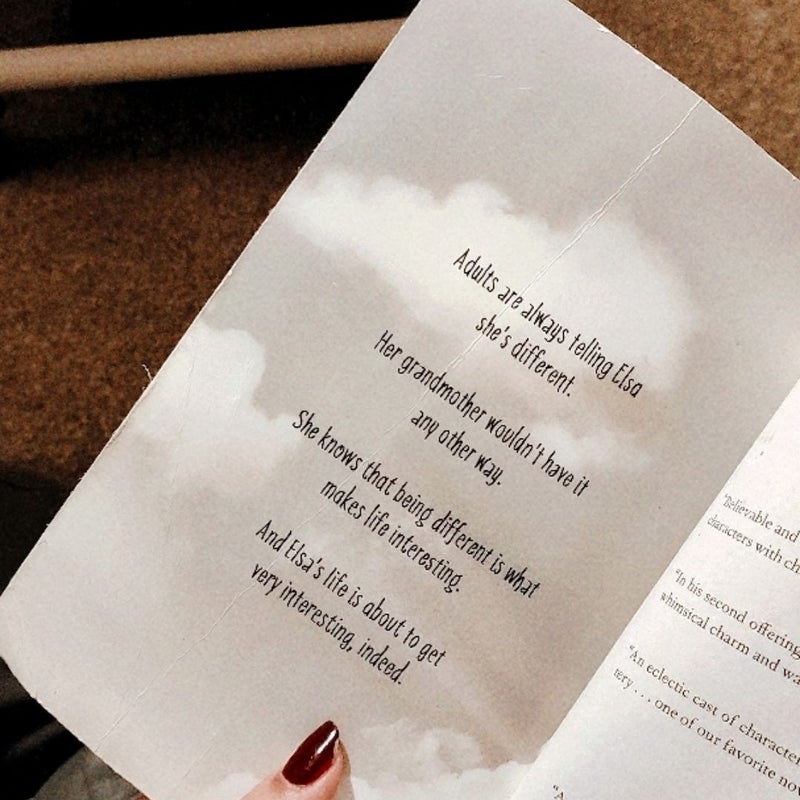 Adults are always telling Elsa
she's different.
Her grandmother wouldn't have it
any other way.
She knows that being different is what
makes life interesting.
And Elsa's life is about to get
very interesting, indeed.
"Believable and
characters with ch
"In his second offering
whimsical charm and wa
"An eclectic cast of character
tery . . . one of our favorite nov
"A